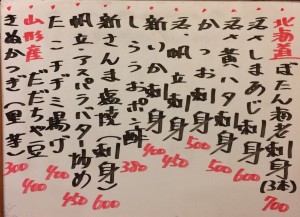 北海道 ぼたん海老刺(3本) 700
活〆しまあじ刺身 600
活〆黄ハタ刺身 500
かつお刺身 500
活帆立刺身 450
新いか刺身 400
白うおポン酢 380
新さんま塩焼(刺身) 600
帆立・アスパラバター炒め 450
たこチヂミ揚げ 400
山形産 だだちゃ豆 400
きぬかつぎ(里芋) 300